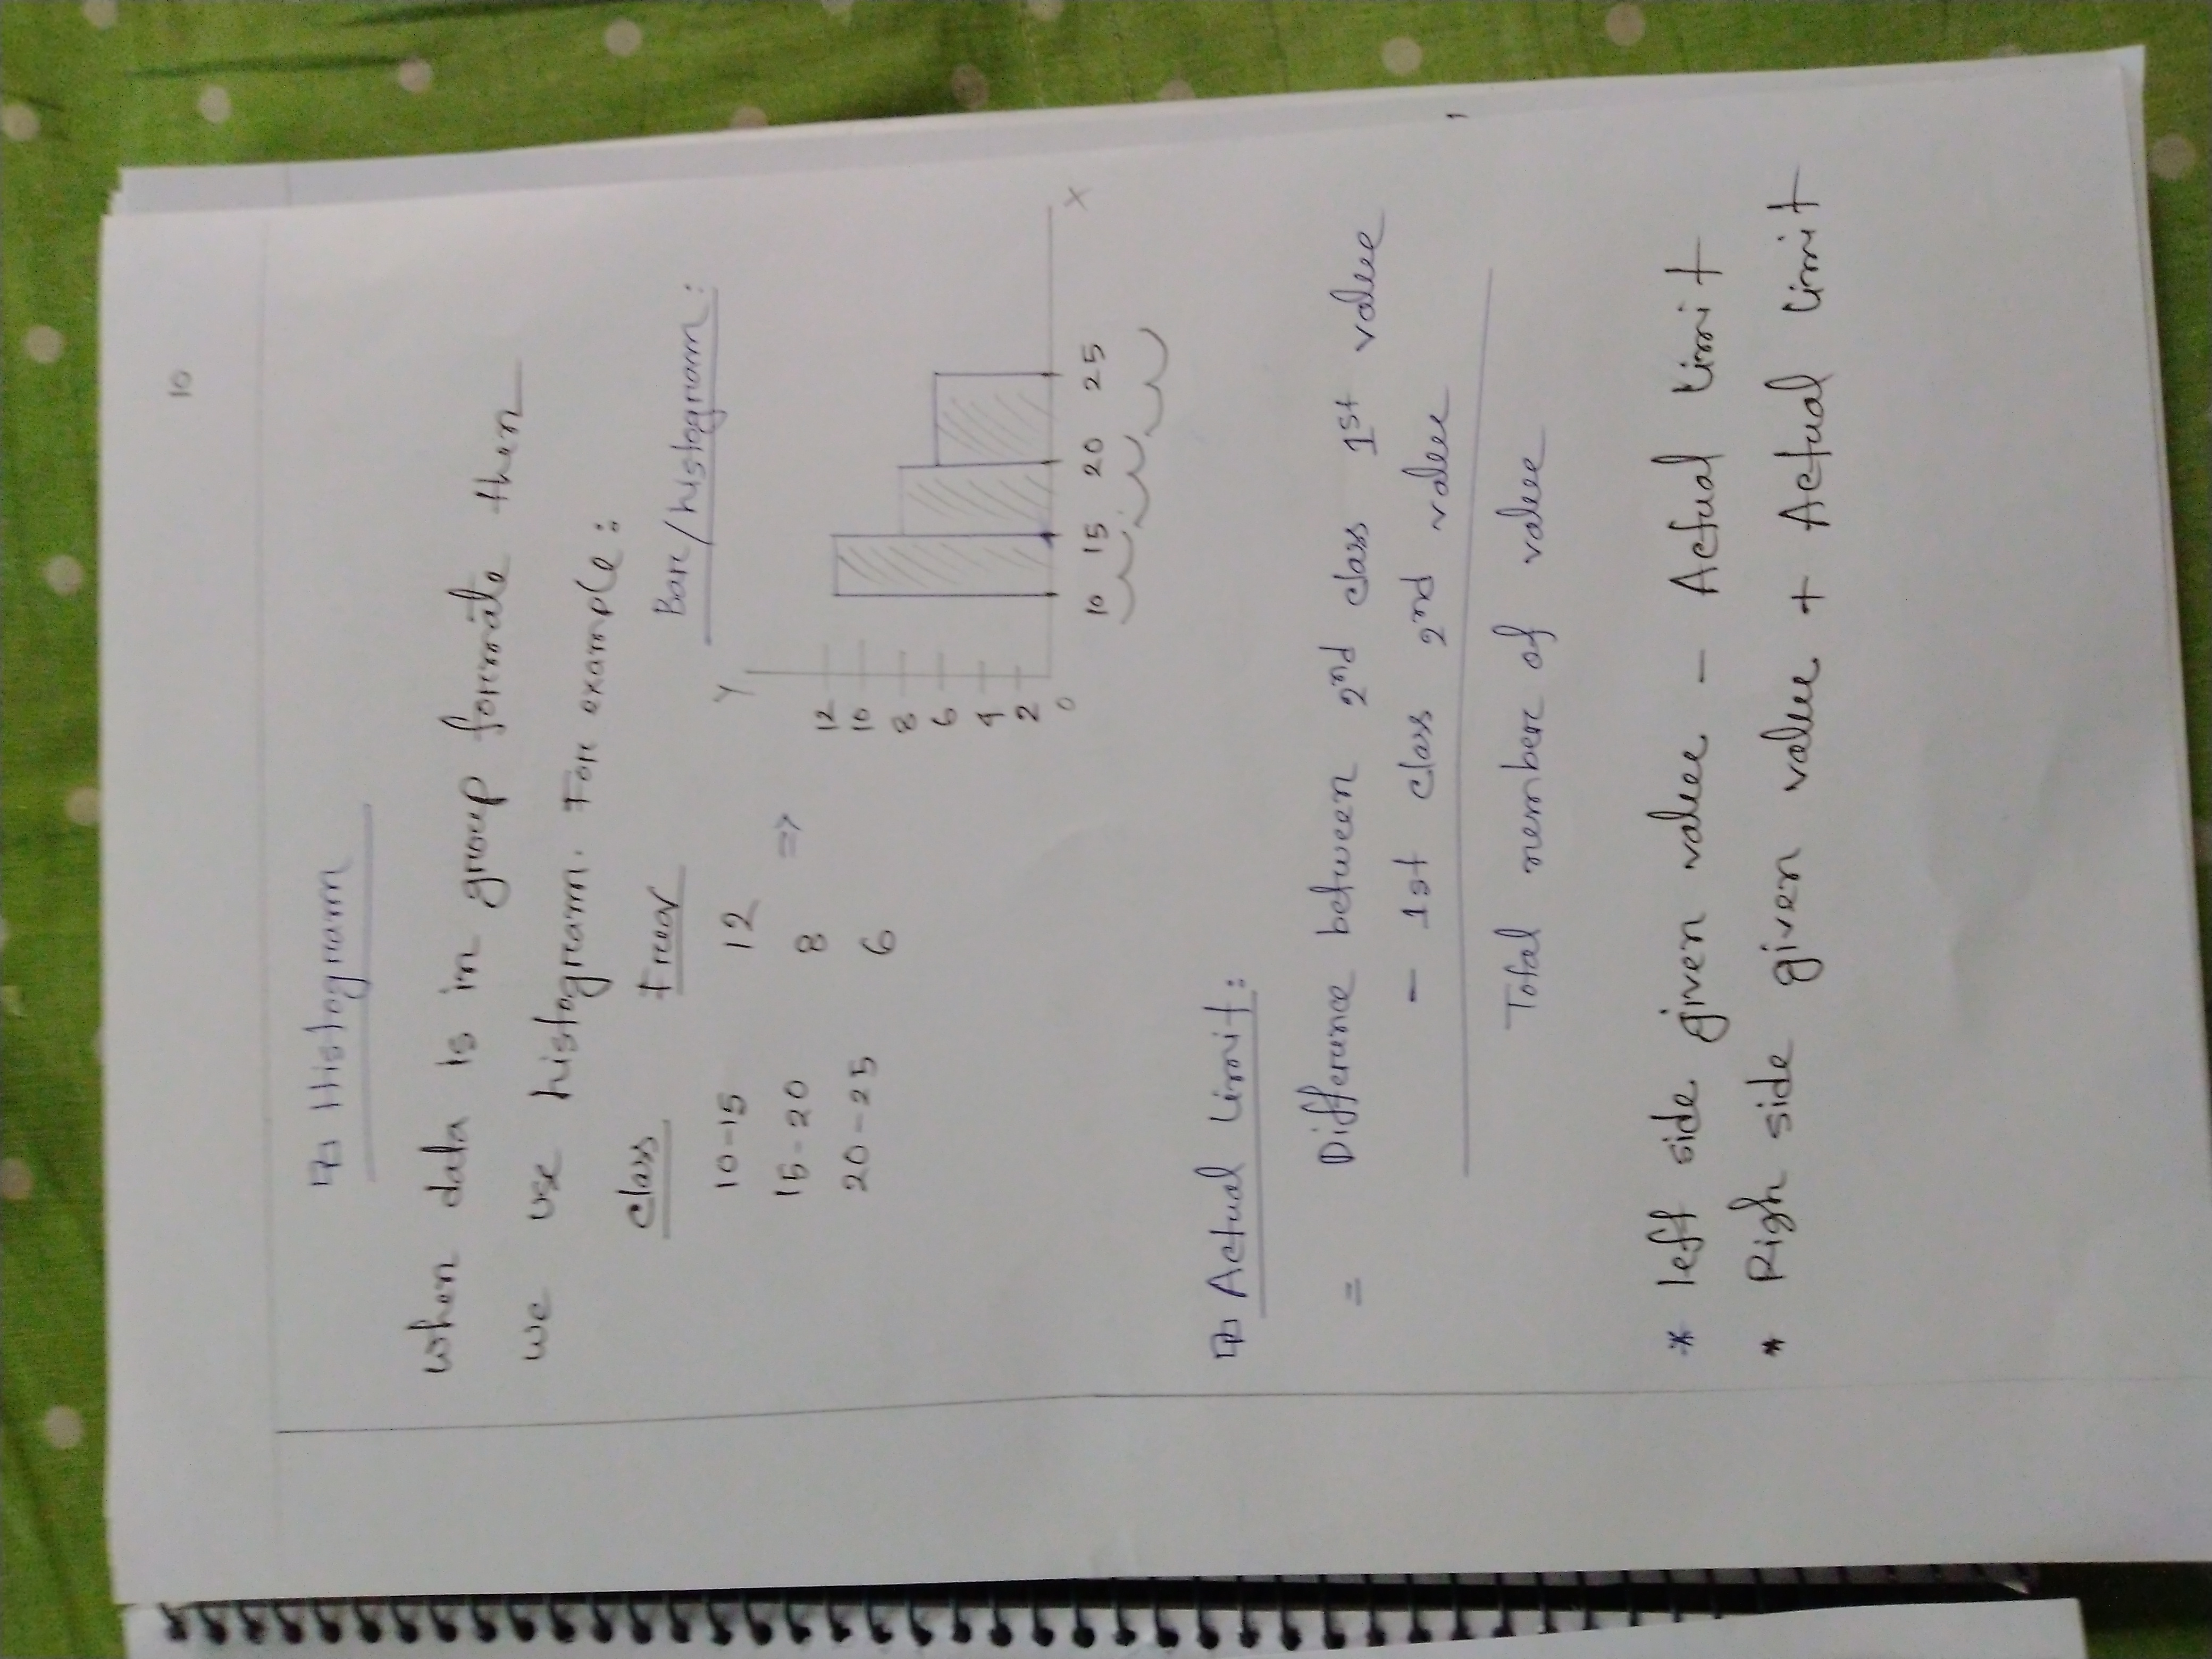 10
Histogram
When data is in group formate then
we use histogram. For example:
class freqr Bar/histogram:
10-15 12 =>
15-20 8
20-25 6
Y
12
10
8
6
4
2
0
10 15 20 25 X
Actual limit:
= Difference between 2nd class 1st value
- 1st class 2nd value
Total number of value
* left side given value - Actual limit
* Righ side given value + Actual limit